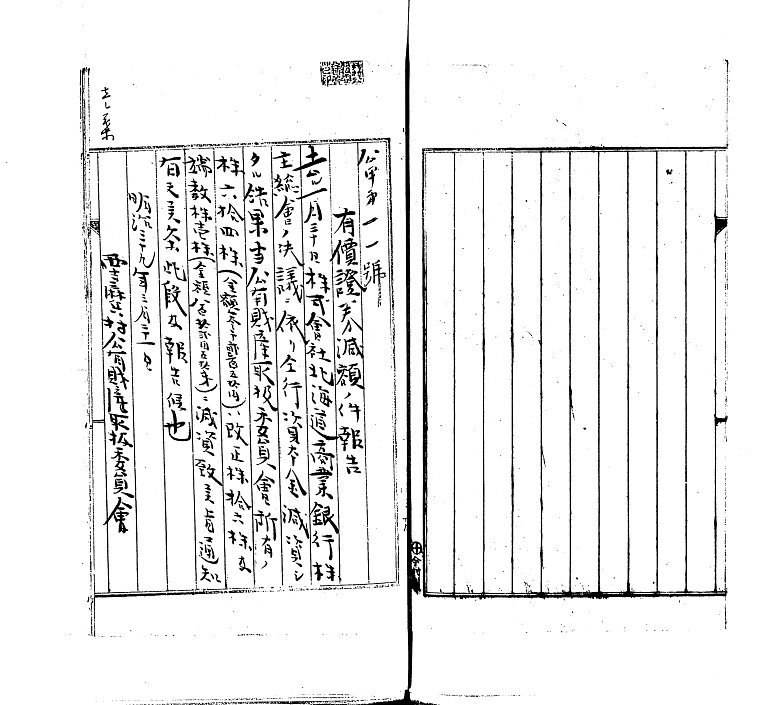 公甲第一一號
有價證券減額ノ件報告
一月三十日株式會社北海道商業銀行株
主總會ノ决議ニ依リ仝行資本金減資シ
タル結果本公有財產取扱委員會所有ノ
株六拾四株(金額參千貳百五拾円)ハ改正株拾六株及
端數株壱株(金額)ニ減資致旨通知
有之候条此段及報告候也
明治三十九年三月二十一日
村公有財產取扱委員會